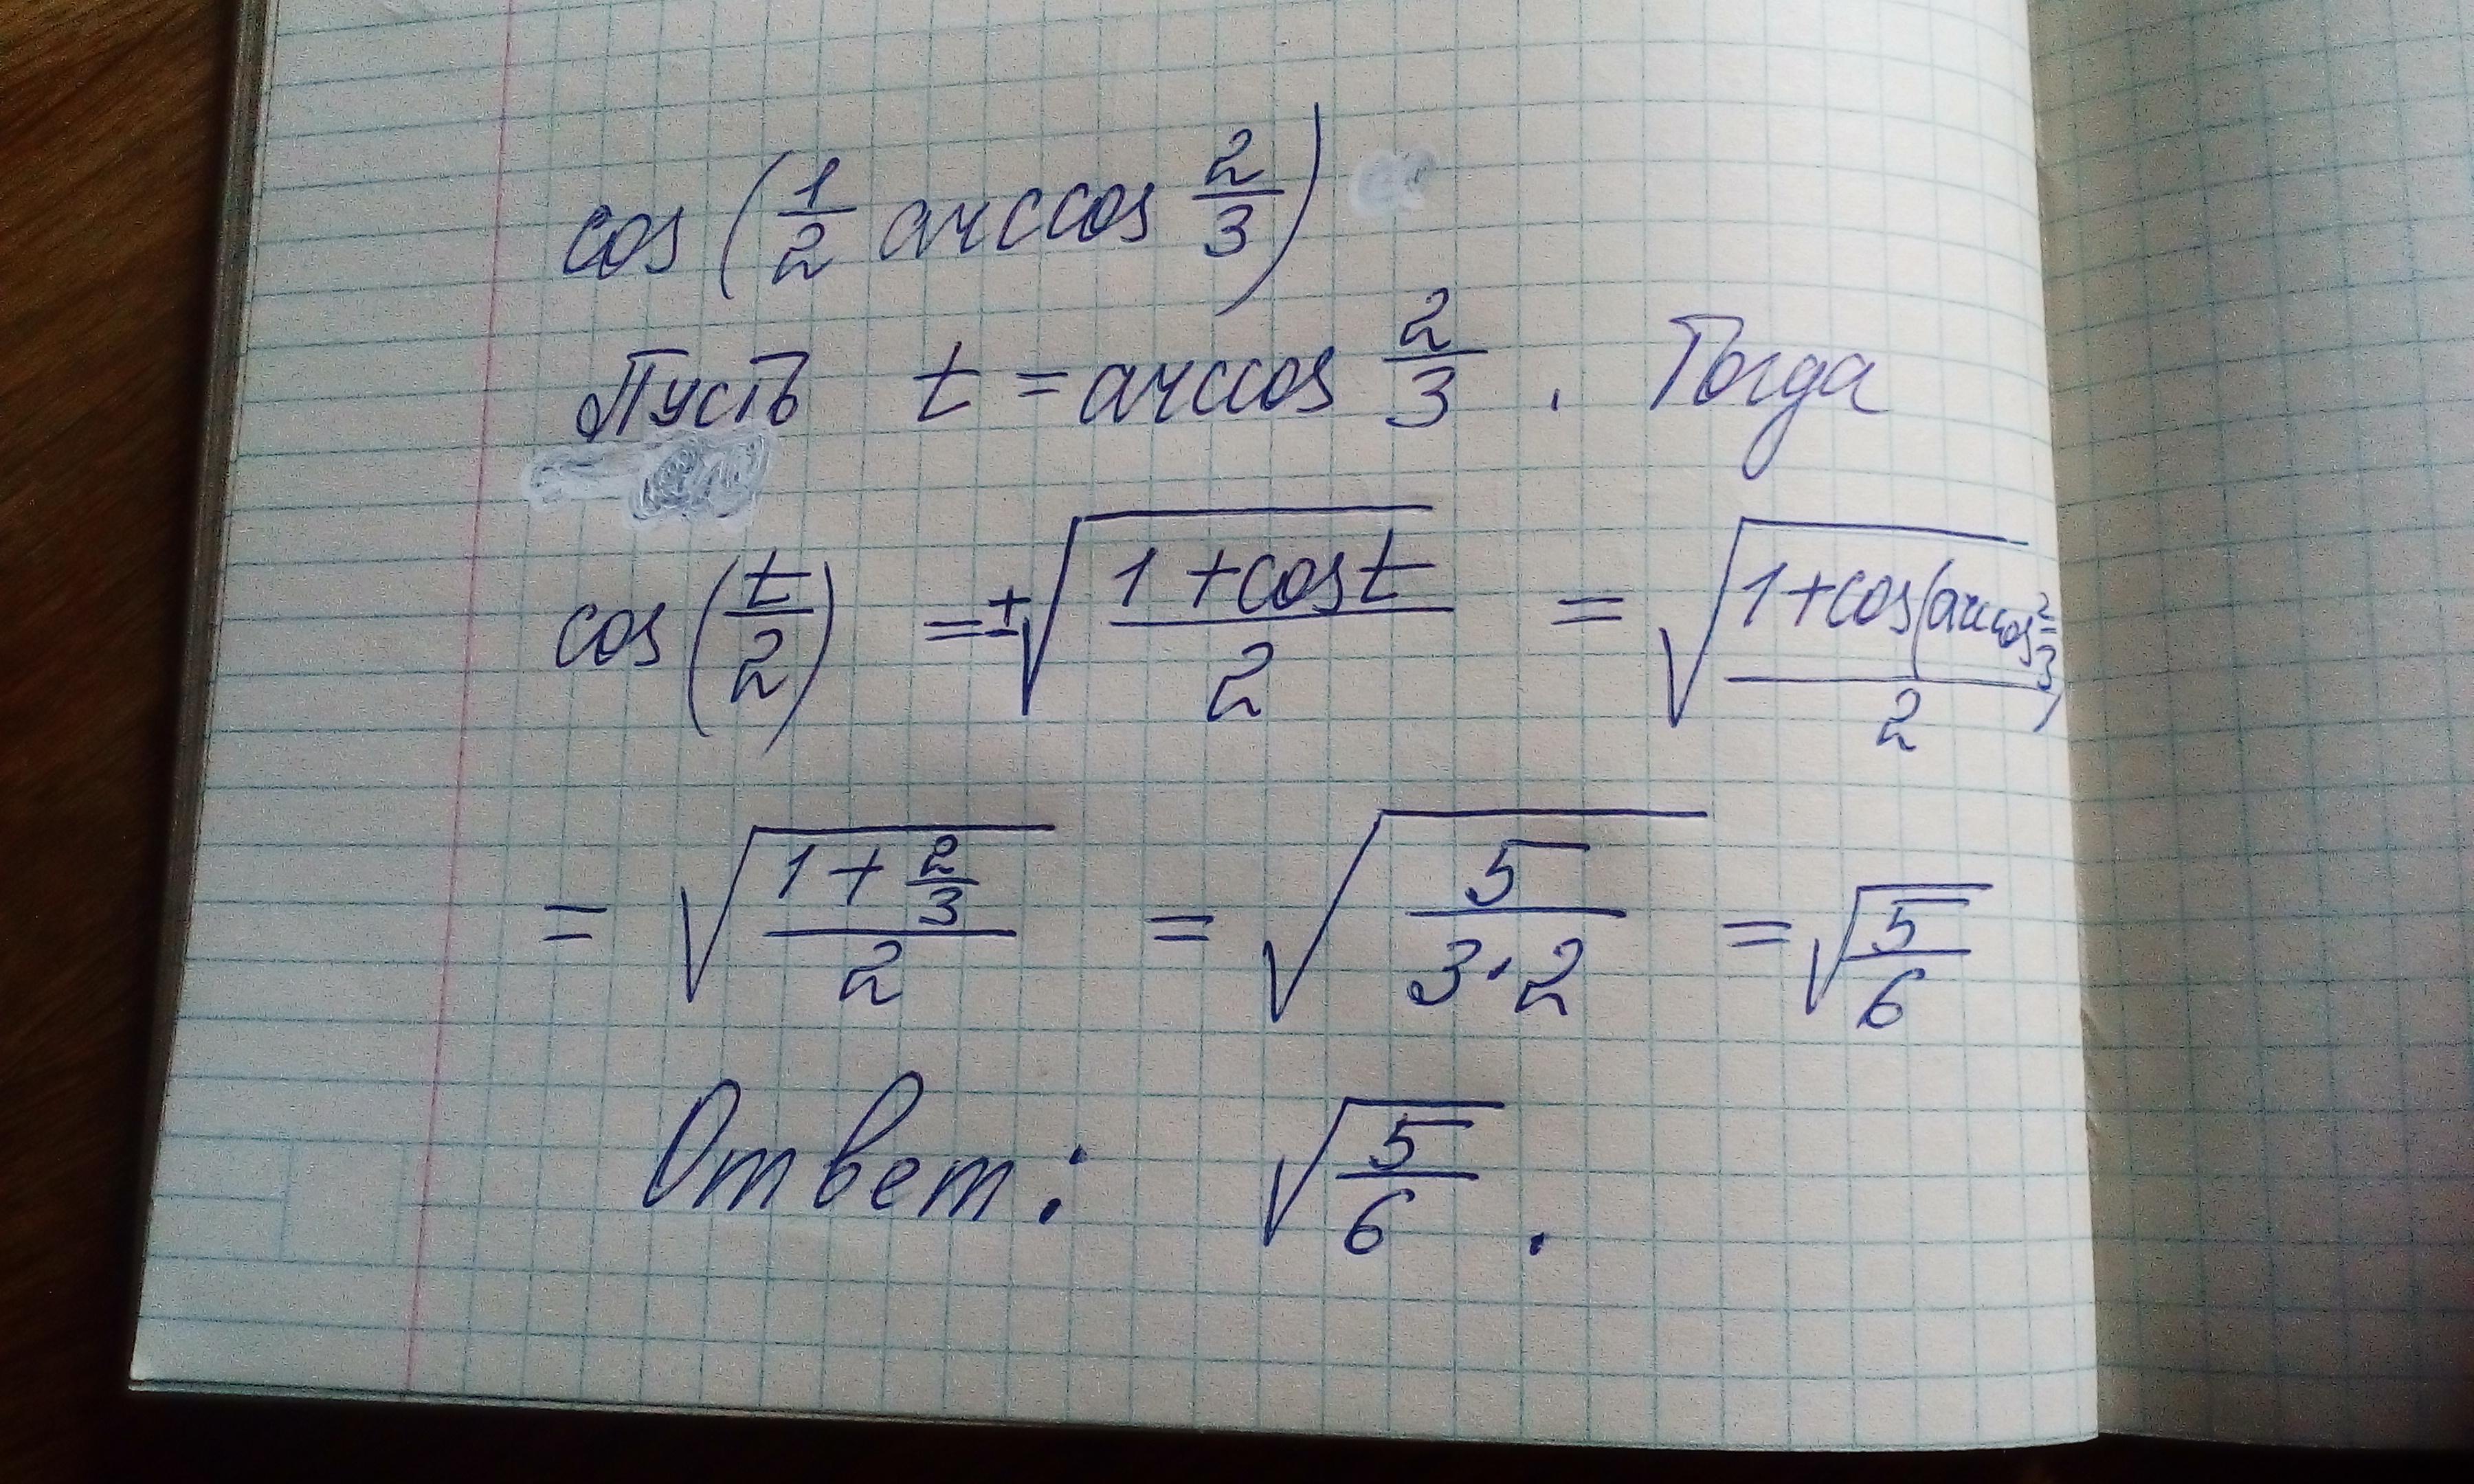 cos(1/2 arccos 2/3)
Пусть t = arccos 2/3 . Тогда
cos(t/2) = ±√((1+cost)/2) = √((1+cos(arccos 2/3))/2)
= √((1+2/3)/2) = √(5/(3·2)) = √(5/6)
Ответ: √(5/6) .